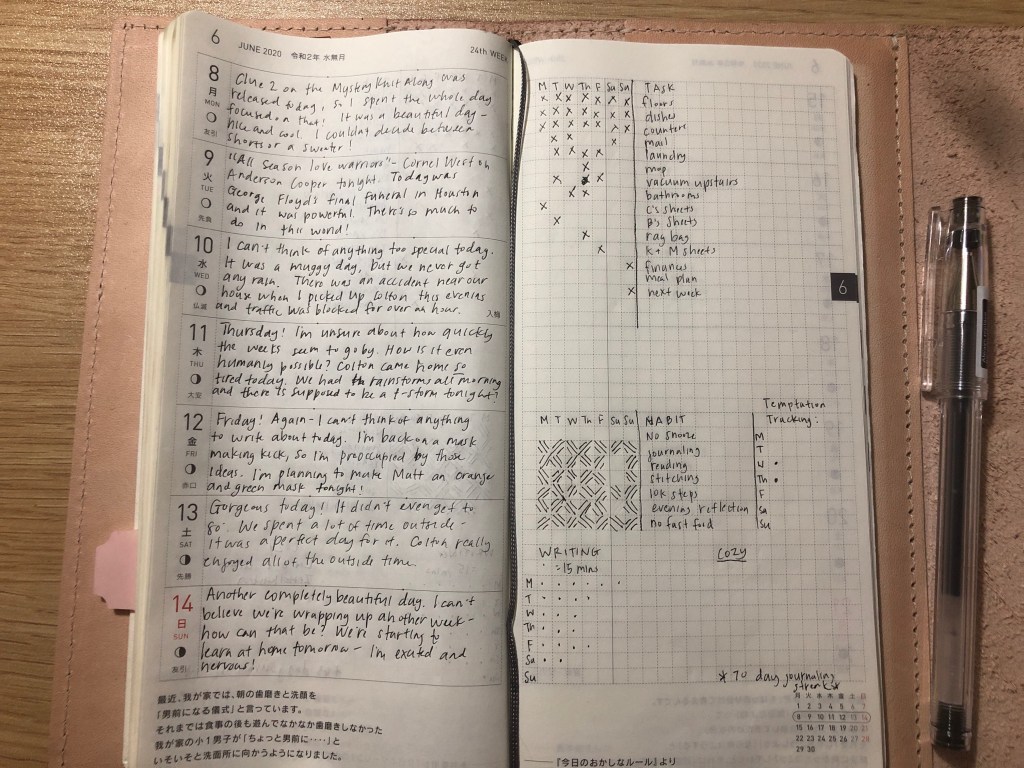 6 JUNE 2020 令和2年 水無月 24th WEEK
8 月 MON 友引
Clue 2 on the Mystery Knit Along was
released today, so I spent the whole day
focused on that! It was a beautiful day -
nice and cool. I couldn't decide between
shorts or a sweater!
9 火 TUE 先負
"All season love warriors" - Cornel West on
Anderson Cooper tonight. Today was
George Floyd's final funeral in Houston
and it was powerful. There's so much to
do in this world!
10 水 WED 仏滅
I can't think of anything too special today.
It was a muggy day, but we never got
any rain. There was an accident near our
house when I picked up Colton this evening
and traffic was blocked for over an hour.
入梅
11 木 THU 大安
Thursday! I'm unsure about how quickly
the weeks seem to go by. How is it even
humanly possible? Colton came home so
tired today. We had rainstorms all morning
and there is supposed to be a t-storm tonight!
12 金 FRI 赤口
Friday! Again - I can't think of anything
to write about today. I'm back on a mask
making kick, so I'm preoccupied by those
ideas. I'm planning to make Matt an orange
and green mask tonight!
13 土 SAT 先勝
Gorgeous today! It didn't even get to
80. We spent a lot of time outside -
it was a perfect day for it. Colton really
enjoyed all of the outside time.
14 日 SUN 友引
Another completely beautiful day. I can't
believe we're wrapping up another week -
how can that be? We're starting to
learn at home tomorrow - I'm excited and
nervous!
最近、我が家では、朝の歯磨きと洗顔を
「男前になる儀式」と言っています。
それまでは食事の後も遊んでなかなか歯磨きしなかった
我が家の小1男子が「ちょっと男前に‥‥」と
いそいそと洗面所に向かうようになりました。
M T W Th F Sa Su TASK
x x x x x x floors
dishes
counters
mail
laundry
mop
vacuum upstairs
bathrooms
x C's sheets
x B's sheets
x rag bag
x K + M sheets
x finances
meal plan
x next week
6
M T W Th F Sa Su HABIT
No snooze
journaling
reading
stitching
10k steps
evening reflection
no fast food
Temptation
Tracking:
M
T
W •
Th •
F
Sa
Su
WRITING
· = 15 mins
COZY
M · · · · · ·
T · · · ·
W · · ·
Th · · ·
F · · · ·
Sa · ·
Su
* 70 day journaling
streak *
月 火 水 木 金 土 日
1 2 3 4 5 6 7
8 9 10 11 12 13 14
15 16 17 18 19 20 21
22 23 24 25 26 27 28
29 30
──『今日のおかしなルール』より